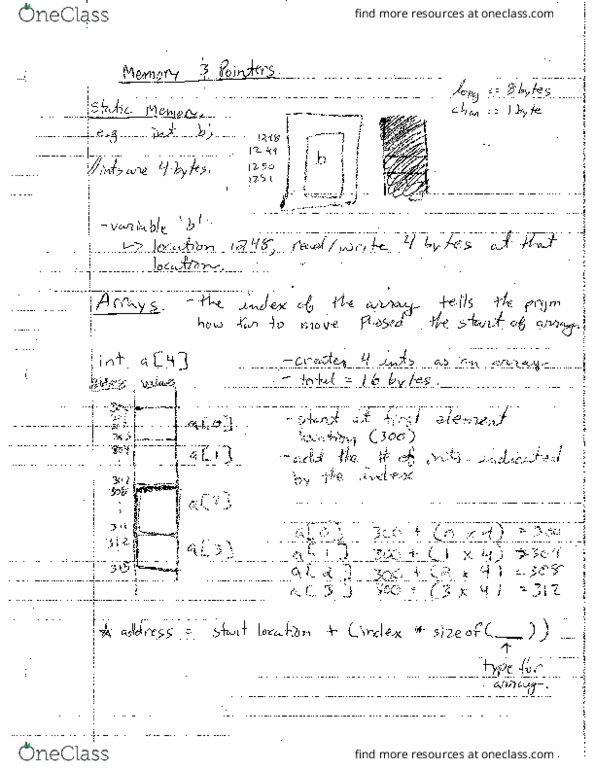 OneClass
find more resources at oneclass.com
Memory & Pointers
long :: 8 bytes
char :: 1 byte
Static Memory.
e.g int b;
//ints are 4 bytes.
1248
1249
1250
1251
b
- variable 'b'
↳ location 1248, read/write 4 bytes at that
location.
Arrays. - the index of the array tells the prgm
how far to move the start of array.
int a[4]
- creates 4 ints as an array
- total = 16 bytes.
values
a[0]
a[1]
a[2]
a[3]
311
312
315
- start at first element
location (300)
- add the # of ints indicated
by the index
a[0] 300 + (0 x 4) = 300
a[1] 300 + (1 x 4) = 304
a[2] 300 + (2 x 4) = 308
a[3] 300 + (3 x 4) = 312
☆ address = start location + (index * size of (__))
↑
type for
array.
OneClass
find more resources at oneclass.com